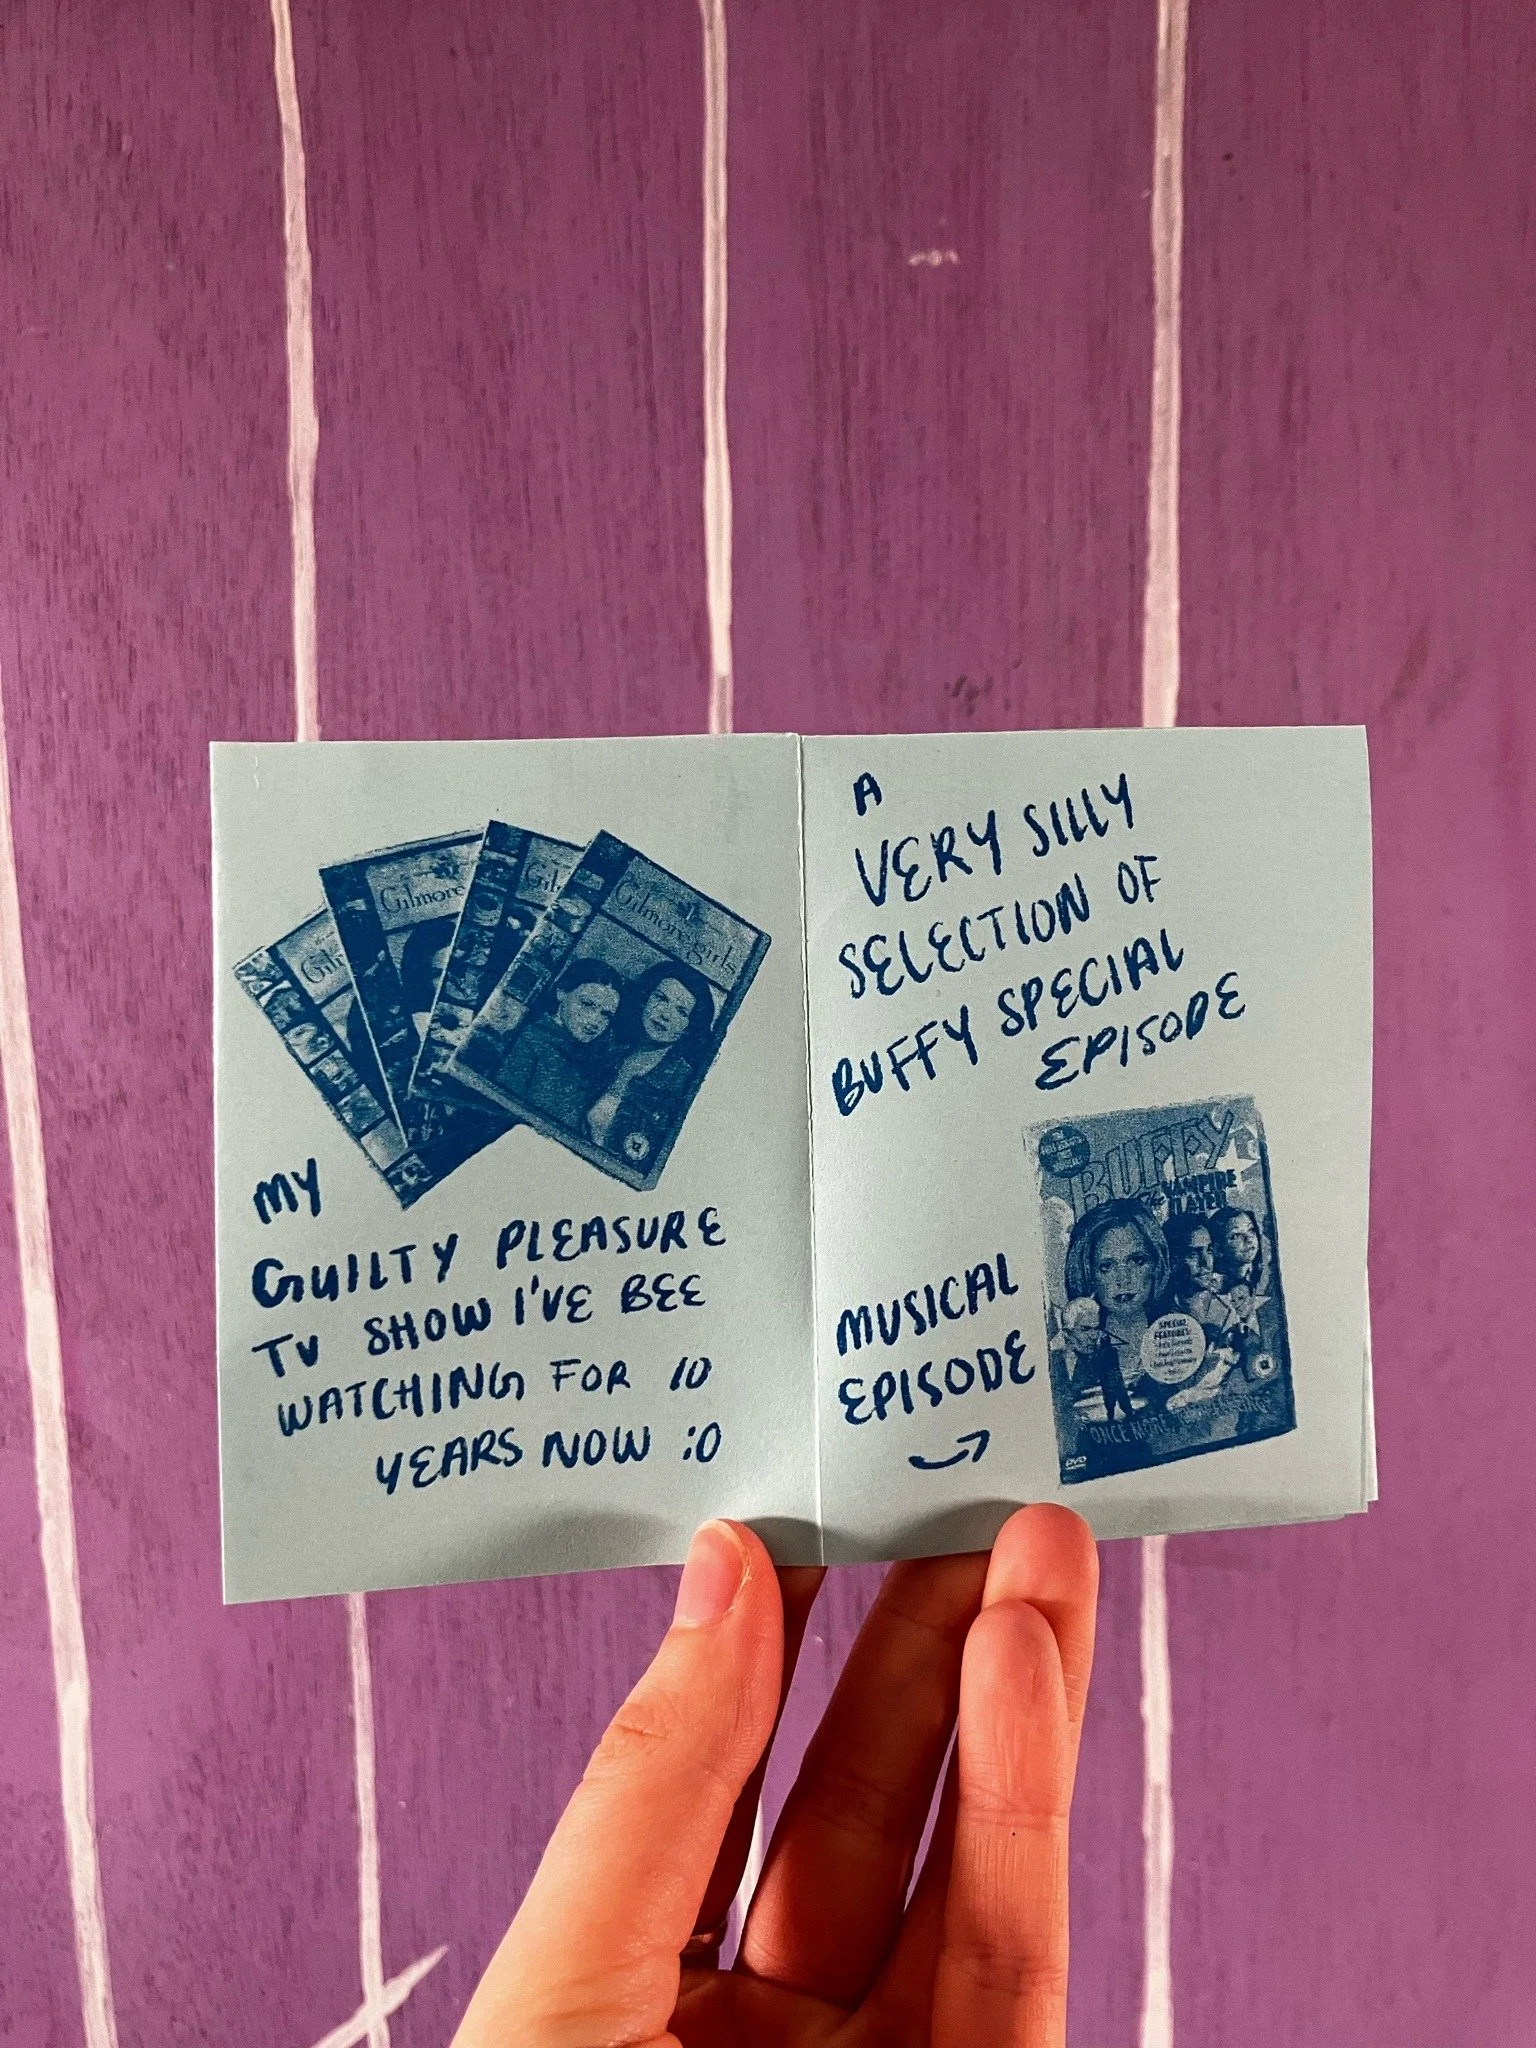 Gil
Gilmore
Gil
Gilmore girls
MY
GUILTY PLEASURE
TV SHOW I'VE BEE
WATCHING FOR 10
YEARS NOW :O
A
VERY SILLY
SELECTION OF
BUFFY SPECIAL
EPISODE
MUSICAL
EPISODE
BUFFY
THE VAMPIRE
SLAYER
SPECIAL
FEATURES:
ONCE MORE,
DVD